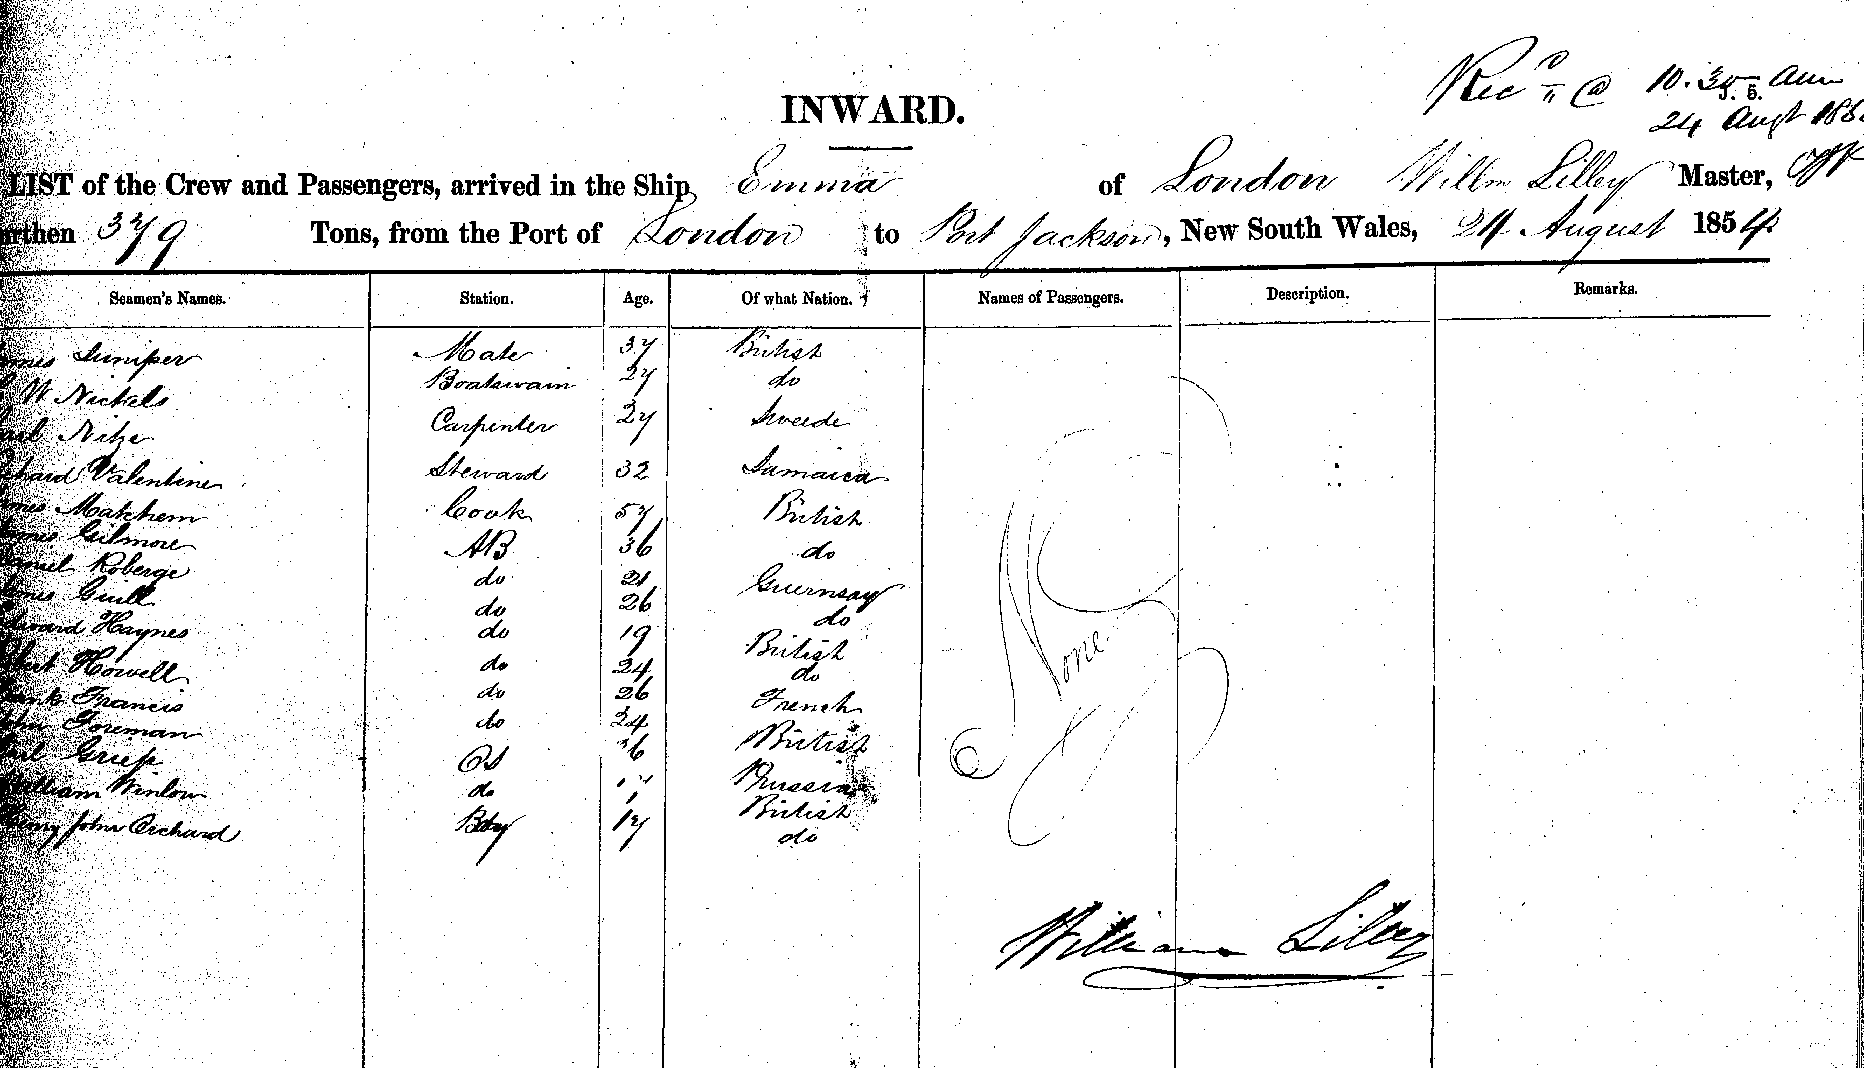 Recd @ 10.35 am
24 Augt 185
INWARD.
LIST of the Crew and Passengers, arrived in the Ship Emma of London Willm Lilley Master, Off
rthen 379 Tons, from the Port of London to Port Jackson, New South Wales, 24 August 1854
Seamen's Names. Station. Age. Of what Nation. Names of Passengers. Description. Remarks.
mes Juniper Mate 37 British
W Nickels Boatswain 27 do
Nitze Carpenter 27 Sweede
chard Valentine Steward 32 Jamaica
mes Matchem Cook 57 British
mes Gilmore AB 36 do
Roberge do 21 Guernsay
mes Guill do 26 do
dward Haynes do 19 British
Howell do 24 do
Francis do 26 French
hn Foreman do 24 British
Griep OS Prussia
William Winlow do British
Henry John Orchard Boy 17 do
None
William Lilley